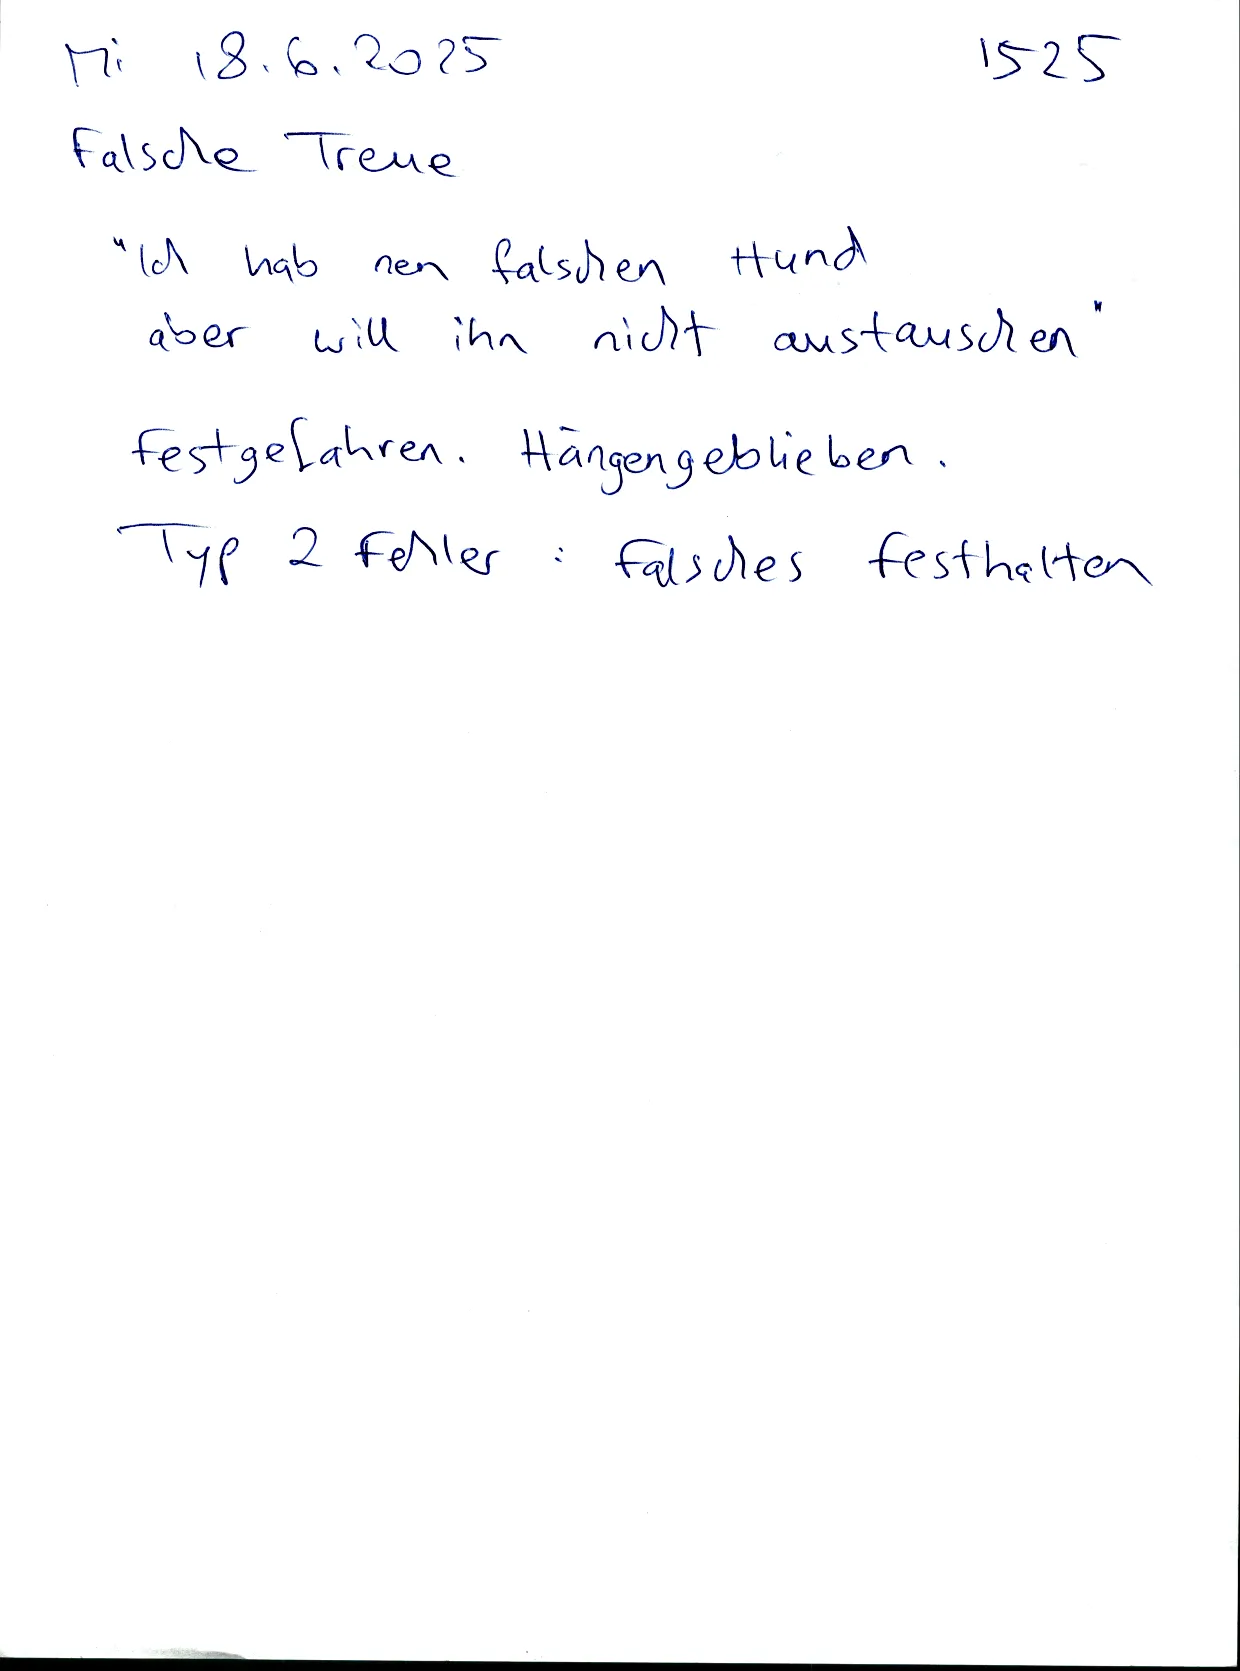 Mi 18.6.2025 1525
Falsche Treue
"Ich hab nen falschen Hund
aber will ihn nicht austauschen"
Festgefahren. Hängengeblieben.
Typ 2 Fehler : Falsches Festhalten